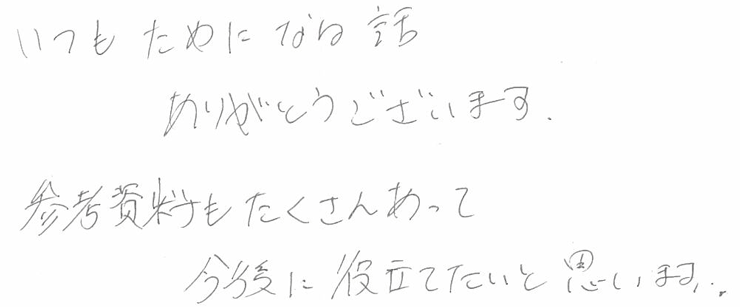 いつもためになる話
ありがとうございます.
参考資料もたくさんあって
今後に役立てたいと思います.